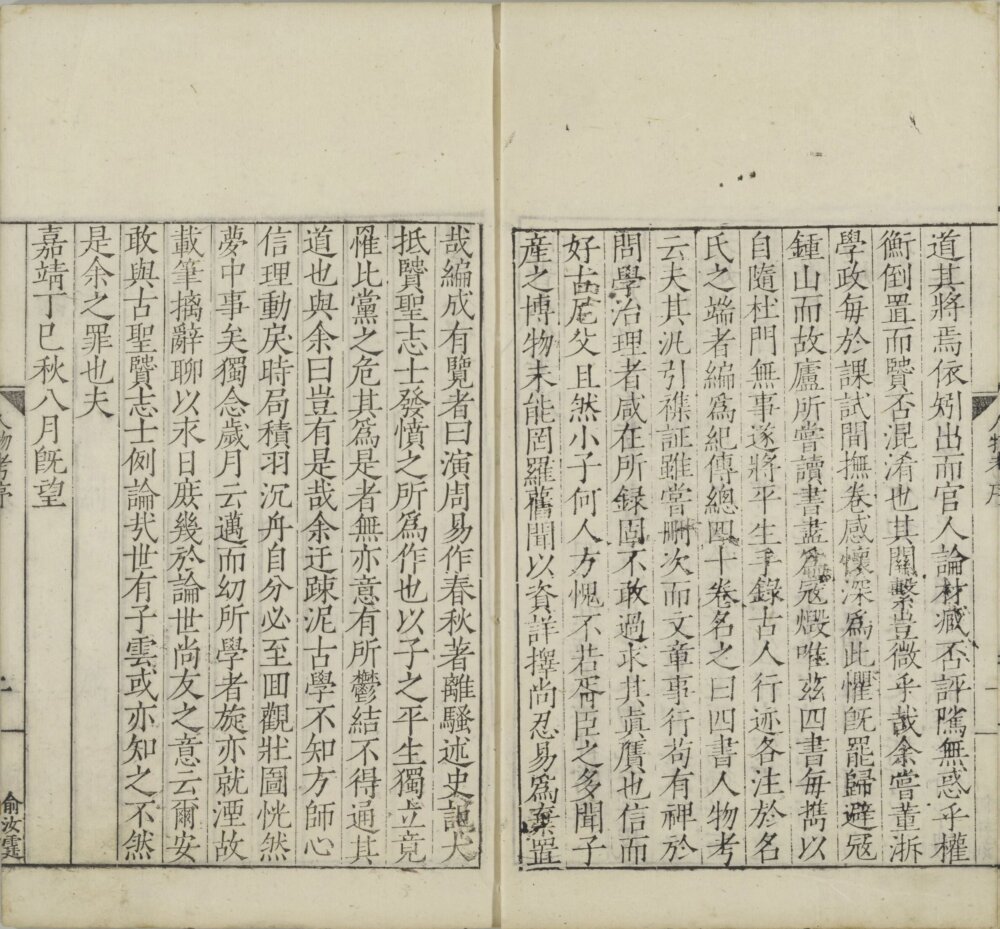 道其將焉依矧出而官人論材臧否評隲無惑乎權
衡倒置而賢否混淆也其關繫豈微乎哉余嘗董浙
學政每於課試間撫卷感懷深爲此懼旣罷歸避寇
鍾山而故廬所嘗讀書盡爲寇燬唯茲四書每雋以
自隨杜門無事遂將平生手錄古人行迹各注於名
氏之端者編爲紀傳總四十卷名之曰四書人物考
云夫其汎引襍証雖嘗刪次而文章事行苟有裨於
問學治理者咸在所録固不敢過求其眞贋也信而
好古尼父且然小子何人方愧不若胥臣之多聞子
產之博物未能罔羅舊聞以資詳擇尚忍易爲棄置
哉編成有覽者曰演周易作春秋著離騷述史記大
抵賢聖志士發憤之所爲作也以子之平生獨立竟
罹比黨之危其爲是者無亦意有所鬱結不得通其
道也與余曰豈有是哉余迂踈泥古學不知方師心
信理動戾時局積羽沉舟自分必至囬觀壯圖恍然
夢中事矣獨念歲月云邁而幼所學者旋亦就湮故
載筆摛辭聊以永日庶幾於論世尚友之意云爾安
敢與古聖賢志士例論㢤世有子雲或亦知之不然
是余之罪也夫
嘉靖丁巳秋八月旣望
人物考序
俞汝霆